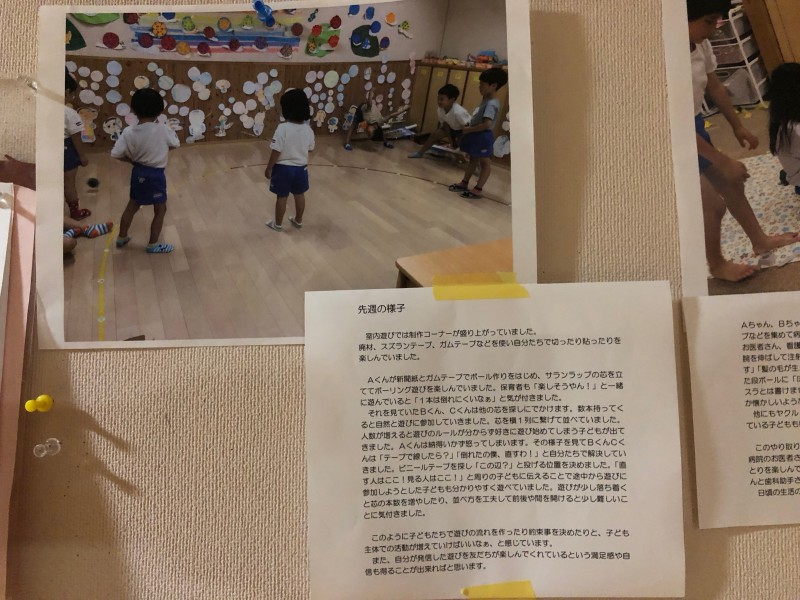 先週の様子
室内遊びでは制作コーナーが盛り上がっていました。
廃材、スズランテープ、ガムテープなどを使い自分たちで切ったり貼ったりを
楽しんでいました。
Aくんが新聞紙とガムテープでボール作りをはじめ、サランラップの芯を立
ててボーリング遊びを楽しんでいました。保育者も「楽しそうやん！」と一緒
に遊んでいると「1本は倒れにくいなぁ」と気が付きました。
それを見ていたBくん、Cくんは他の芯を探しにでかけます。数本持ってく
ると自然と遊びに参加していきました。芯を横1列に繋げて並べていました。
人数が増えると遊びのルールが分からず好きに遊び始めてしまう子どもが出て
きました。Aくんは納得いかず怒ってしまいます。その様子を見てBくんCく
んは「テープで線したら？」「倒れたの僕、直すわ！」と自分たちで解決してい
きました。ビニールテープを探し「この辺？」と投げる位置を決めました。「直
す人はここ！見る人はここ！」と周りの子どもに伝えることで途中から遊びに
参加しようとした子どもも分かりやすく遊べていました。遊びが少し落ち着く
と芯の本数を増やしたり、並べ方を工夫して前後や間を開けると少し難しいこ
とに気付きました。
このように子どもたちで遊びの流れを作ったり約束事を決めたりと、子ども
主体での活動が増えていけばいいなぁ、と感じています。
また、自分が発信した遊びを友だちが楽しんでくれているという満足感や自
信も得ることが出来ればと思います。
Aちゃん、Bちゃ
プなどを集めて病
お医者さん、看護
腕を伸ばして注射
す」「髪の毛が生
た段ボールに「
スラとは書けませ
か懐かしいような
他にもヤクル
ている子どもも
このやり取り
病院のお医者さ
とりを楽しんで
んと歯科助手さ
日頃の生活の